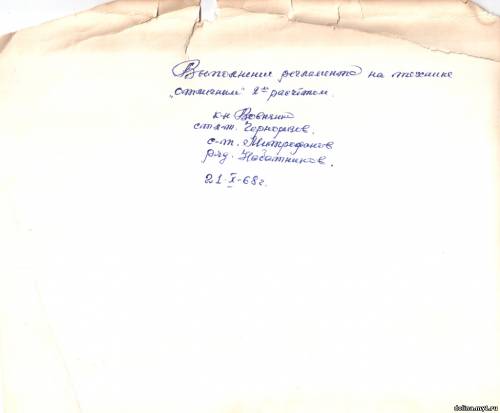 Выполнение регламента на технике
„отменный" 2ым расчётом.
к-н Вовченко
ст. л-т. Черноривов.
с-т. Митрофанов
ряд. Набатников.
21-X-68г.
dolina.my1.ru